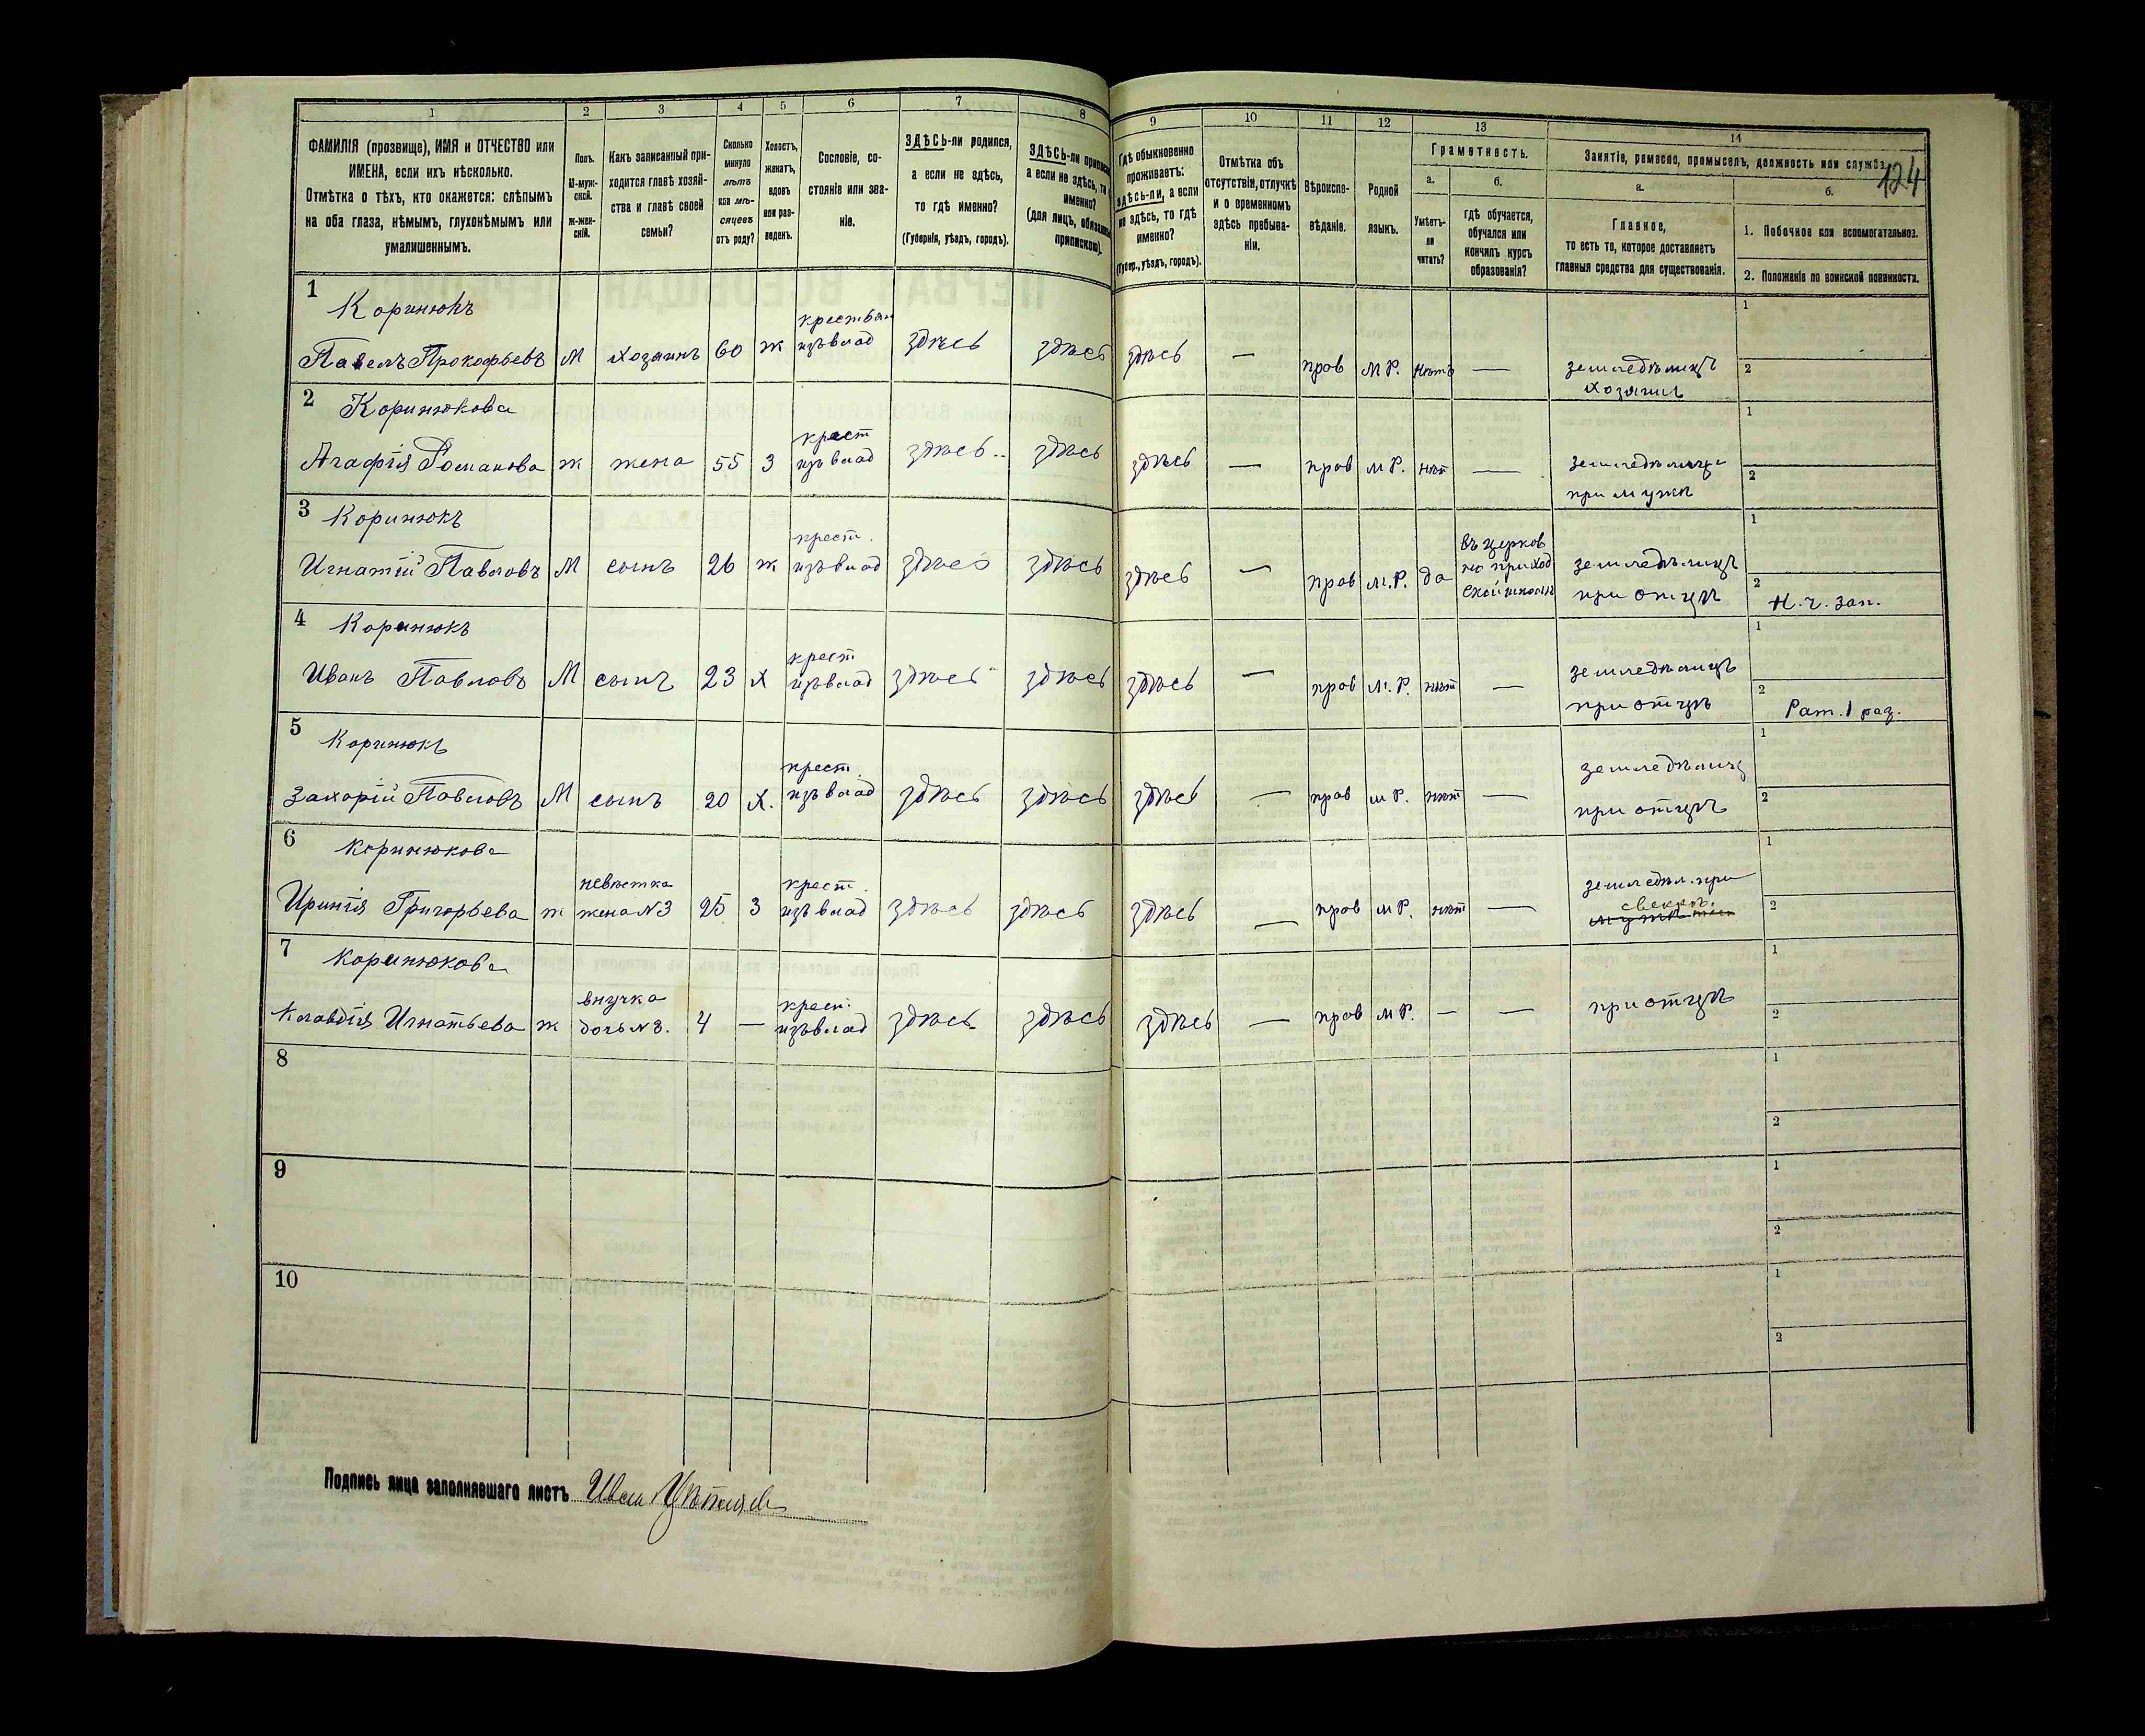 1
2
3
4
5
6
7
8
ФАМИЛІЯ (прозвище), ИМЯ и ОТЧЕСТВО или
ИМЕНА, если ихъ нѣсколько.
Отмѣтка о тѣхъ, кто окажется: слѣпымъ
на оба глаза, нѣмымъ, глухонѣмымъ или
умалишеннымъ.
Полъ.
М-муж-
ской.
Ж-жен-
скій.
Какъ записанный при-
ходится главѣ хозяй-
ства и главѣ своей
семьи?
Сколько
минуло
лѣтъ
или мѣ-
сяцевъ
отъ роду?
Холостъ,
женатъ,
вдовъ
или раз-
веденъ.
Сословіе, со-
стояніе или зва-
ніе.
ЗДѢСЬ-ли родился,
а если не здѣсь,
то гдѣ именно?
(Губернія, уѣздъ, городъ).
ЗДѢСЬ-ли
а если не здѣсь, то
именно?
(для лицъ,
припискою).
9
10
11
12
13
14
Гдѣ обыкновенно
проживаетъ:
здѣсь-ли, а если
не здѣсь, то гдѣ
именно?
(Губер., уѣздъ, городъ).
Отмѣтка объ
отсутствіи, отлучкѣ
и о временномъ
здѣсь пребыва-
ніи.
Вѣроиспо-
вѣданіе.
Родной
языкъ.
Грамотность.
а.
б.
Умѣетъ-
ли
читать?
гдѣ обучается,
обучался или
кончилъ курсъ
образованія?
Занятіе, ремесло, промыселъ, должность или служба.
124
а.
б.
Главное,
то есть то, которое доставляетъ
главныя средства для существованія.
1. Побочное или вспомогательное.
2. Положеніе по воинской повинности.
1 Коринюкъ
Павелъ Прокофьевъ М хозяинъ 60 ж крестьян изъ влад здѣсь здѣсь здѣсь — прав М.Р. нѣтъ — земледѣлецъ хозяинъ 1 2
2 Коринюкова
Агафія Романова ж жена 55 З крест изъ влад здѣсь здѣсь здѣсь — прав М.Р. нѣт — при мужѣ 1 2
3 Коринюкъ
Игнатій Павловъ М сынъ 26 ж крест. изъ влад здѣсь здѣсь здѣсь — прав М.Р. да въ церков но приход ской школѣ земледѣлецъ при отцѣ 1 2 Н. ч. зап.
4 Коринюкъ
Иванъ Павловъ М сынъ 23 Х крест изъ влад здѣсь здѣсь здѣсь — прав М.Р. нѣт — земледѣлецъ при отцѣ 1 2 Рат. 1 раз.
5 Коринюкъ
Захарій Павловъ М сынъ 20 Х. крест. изъ влад здѣсь здѣсь здѣсь — прав М.Р. нѣт — земледѣлец при отцѣ 1 2
6 Коринюкова
Иринія Григорьева ж невѣстка жена №3 25 З крест. изъ влад здѣсь здѣсь здѣсь — прав М.Р. нѣт — земледѣл. при свекрѣ. 1 2
7 Коринюкова
Клавдія Игнатьева ж внучка дочь №3. 4 — крест. изъ влад здѣсь здѣсь здѣсь — прав М.Р. — — при отцѣ 1 2
8 1 2
9 1 2
10 1 2
Подпись лица заполнявшаго листъ Иван